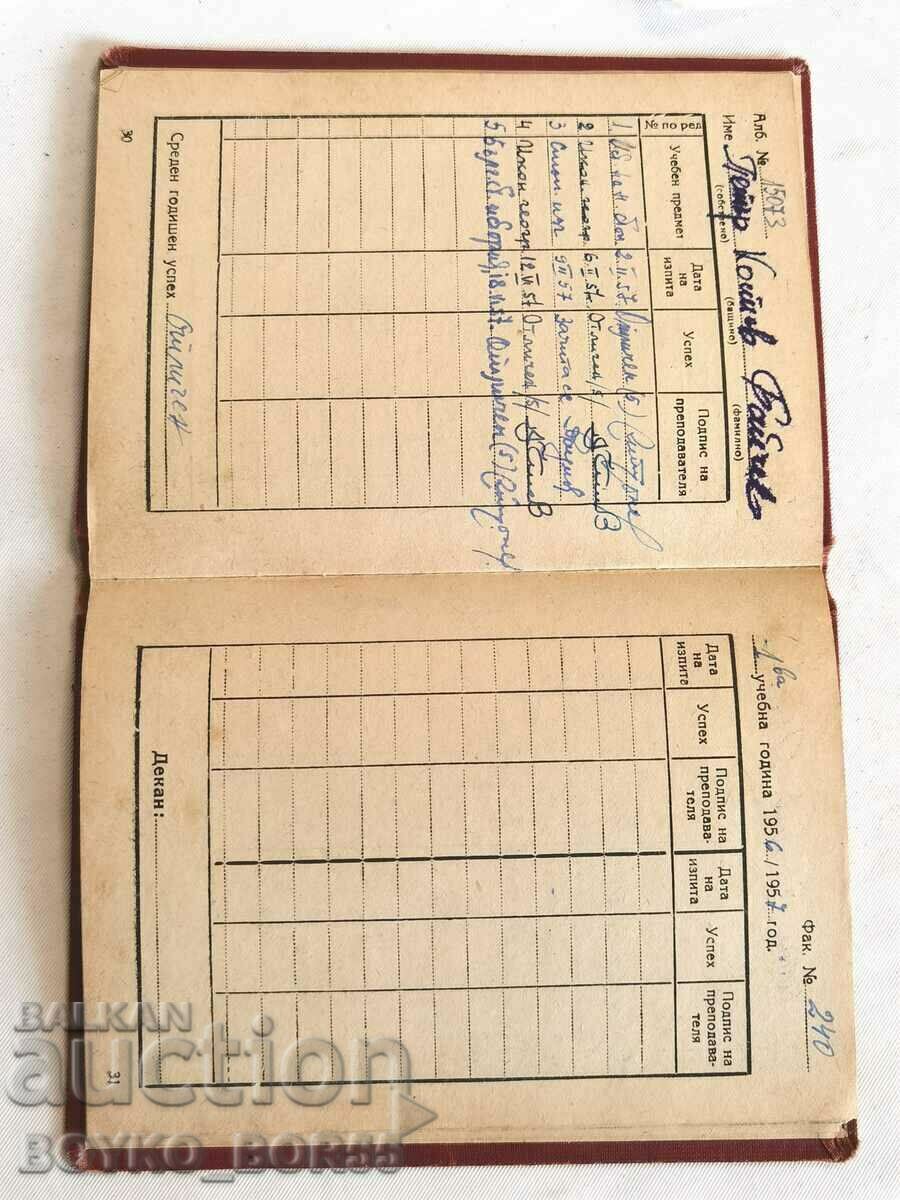 Алб. № 15073
Име Петър Койчев
(собствено) (бащино) (фамилно)
№ по ред Учебен предмет Дата на изпита Успех Подпис на преподавателя
1. 2.II.57. Отличен (5)
2. Икон. геогр. 6.II.57. Отличен /5/
3 9 II 57 Зачита се
4 Икон. геогр. 12.VI.57 Отличен /5/
5. Бълг. история 18.VI.57. Отличен (5)
Среден годишен успех Отличен
30
Фак. № 240
1ва учебна година 1956/1957 год.
Дата на изпита Успех Подпис на преподава-теля Дата на изпита Успех Подпис на преподава-теля
Декан:
31
BALKAN
auction
BOYKO_BOR55